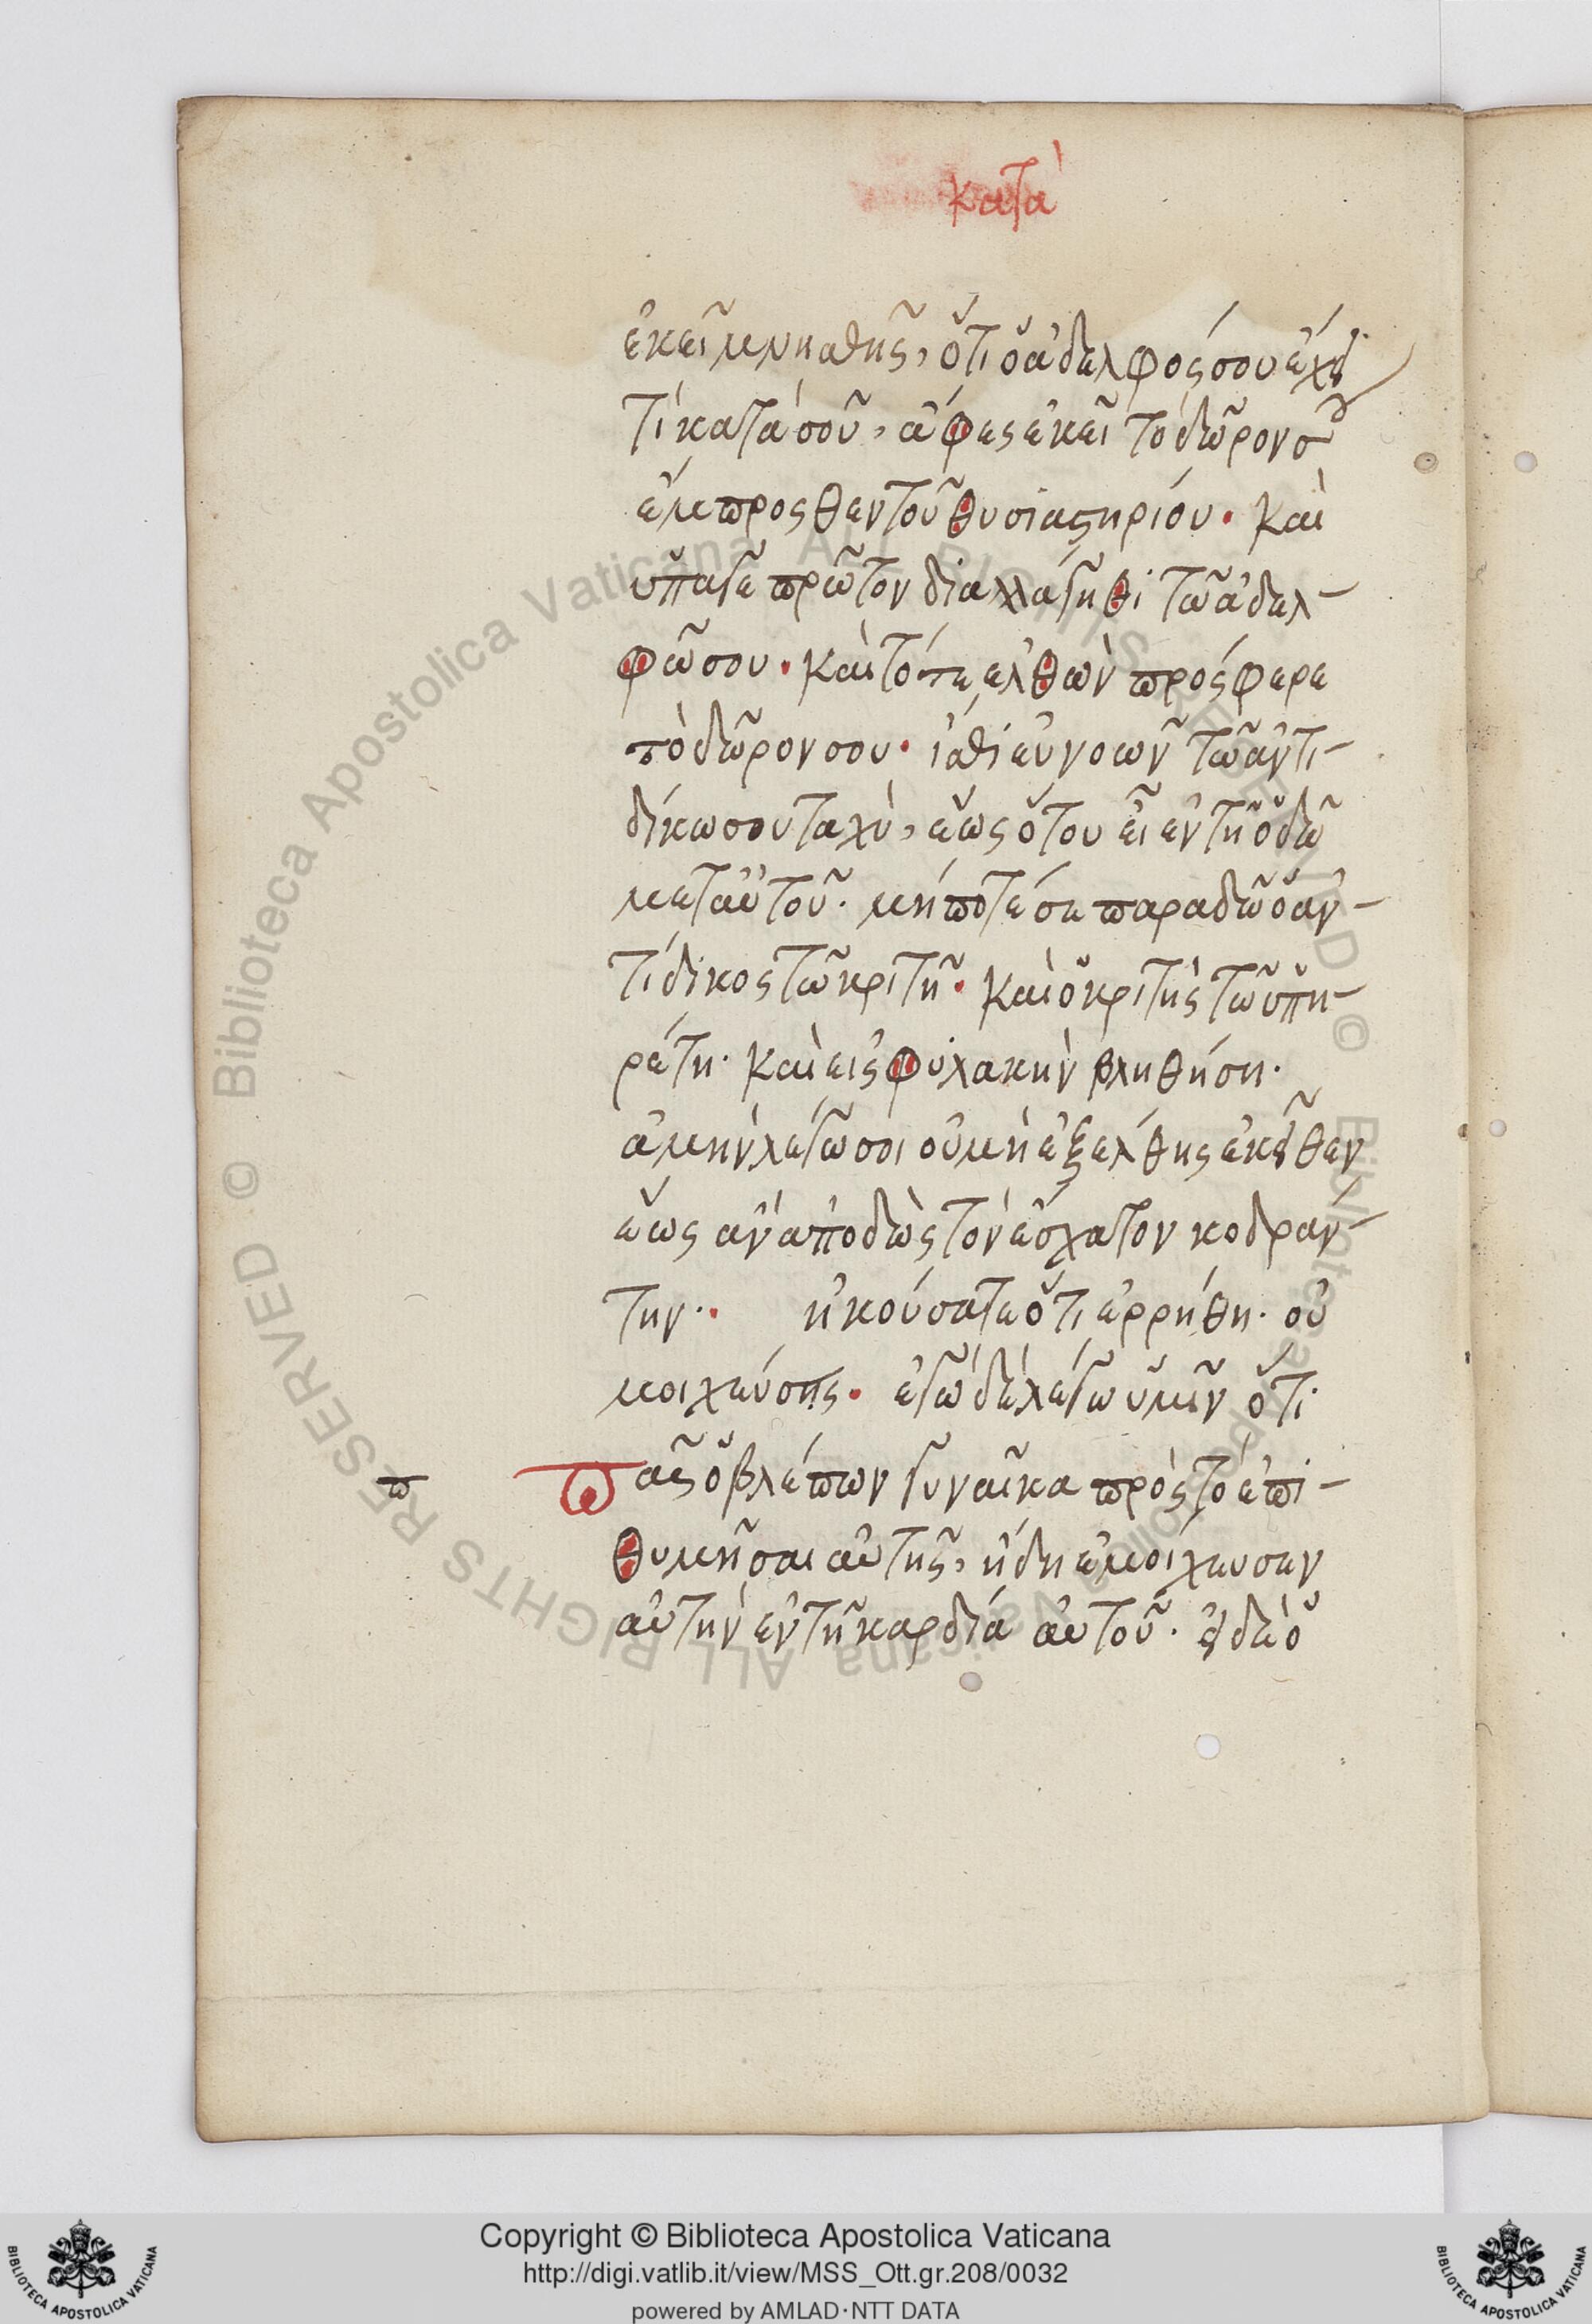 κατὰ
ἐκεῖ μνησθῆς, ὅτι ὁ ἀδελφός σου ἔχει
τί κατά σοῦ, ἄφες ἐκεῖ τὸ δῶρον σου
ἔμπροσθεν τοῦ θυσιαστηρίου. καὶ
ὕπαγε πρῶτον διαλλάγηθι τῶ ἀδελ-
φῶ σου. καὶ τότε ἐλθὼν πρόσφερε
τὸ δῶρον σου. ἴσθι εὐνοῶν τῶ ἀντι-
δίκω σου ταχὺ, ἕως ὅτου εἶ ἐν τῆ ὁδῶ
μετ αὐτοῦ. μήποτέ σε παραδῶ ὁ ἀν-
τίδικος τῶ κριτῆ. καὶ ὁ κριτὴς τῶ ὑπη-
ρέτη. καὶ εἰς φυλακὴν βληθήση.
ἀμὴν λέγω σοι οὐ μὴ ἐξέλθης ἐκεῖθεν
ἕως ἂν ἀποδῶς τὸν ἔσχατον κοδράν-
την. ἠκούσατε ὅτι ἐρρήθη. οὐ
μοιχεύσης. ἐγὼ δὲ λέγω ὑμῖν ὅτι
πᾶς ὁ βλέπων γυναῖκα πρὸς τὸ ἐπι-
θυμῆσαι αὐτῆς, ἤδη ἐμοίχευσεν
αὐτὴν ἐν τῆ καρδία αὐτοῦ. εἰ δὲ ὁ
π
© Biblioteca Apostolica Vaticana ALL RIGHTS RESERVED © Biblioteca Apostolica Vaticana ALL RIGHTS RESERVED
Copyright © Biblioteca Apostolica Vaticana
http://digi.vatlib.it/view/MSS_Ott.gr.208/0032
powered by AMLAD·NTT DATA
BIBLIOTECA APOSTOLICA VATICANA
BIBLIOTECA APOSTOLICA VATICANA